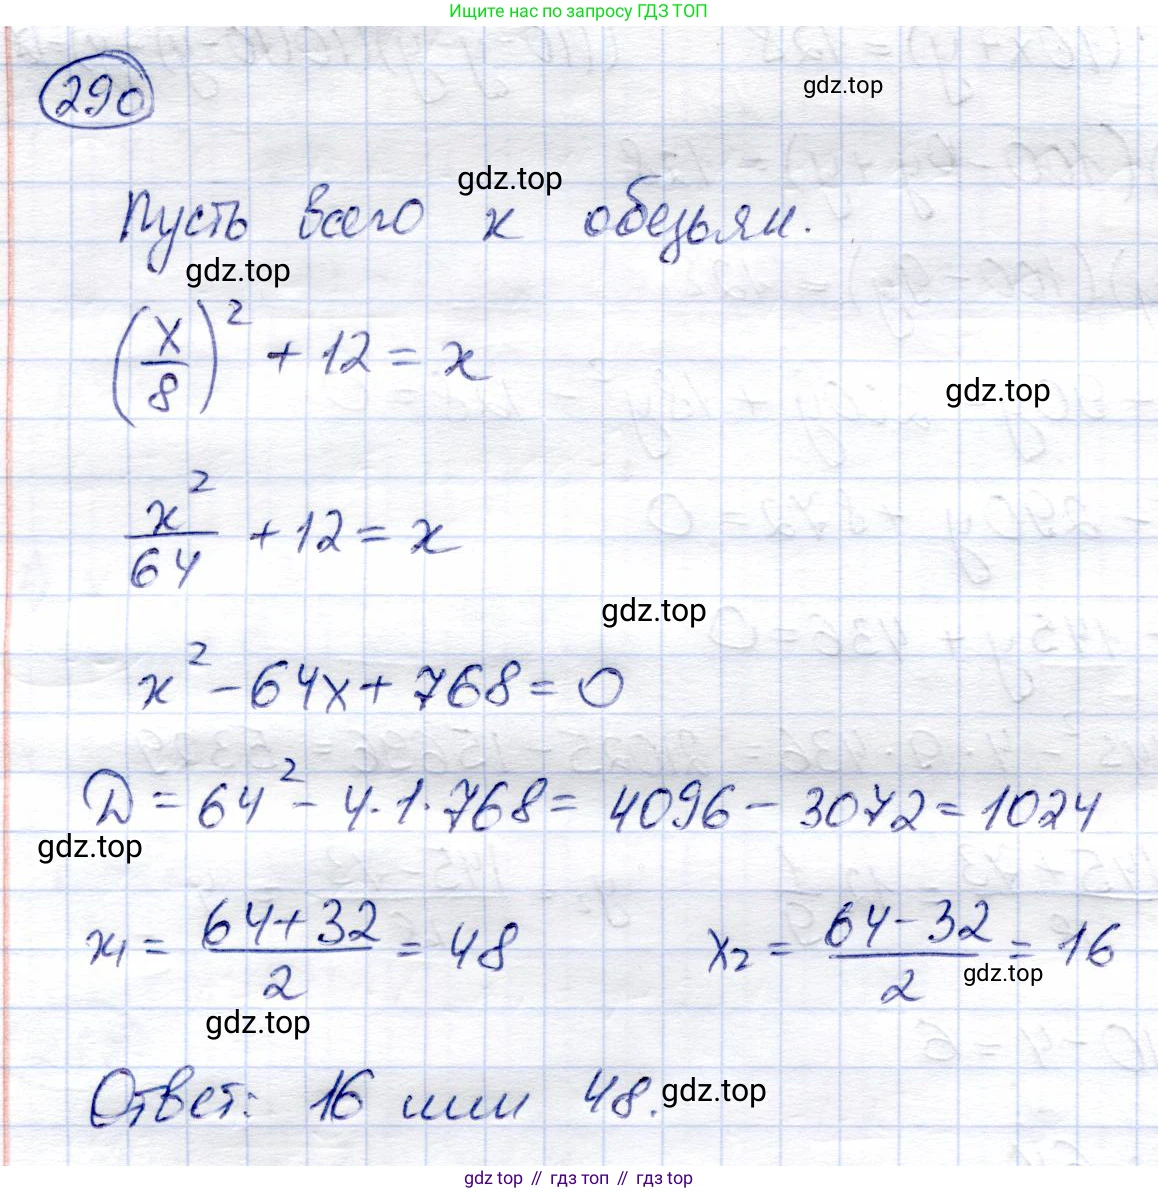 Ищите нас по запросу ГДЗ ТОП
290
gdz.top
gdz.top
Пусть всего x обезьян.
gdz.top
(x/8)² + 12 = x
gdz.top
x²/64 + 12 = x
gdz.top
x² - 64x + 768 = 0
D = 64² - 4·1·768 = 4096 - 3072 = 1024
gdz.top
x₁ = (64+32)/2 = 48 x₂ = (64-32)/2 = 16
gdz.top
gdz.top
Ответ: 16 или 48.
gdz.top
gdz top // гдз топ // gdz.top